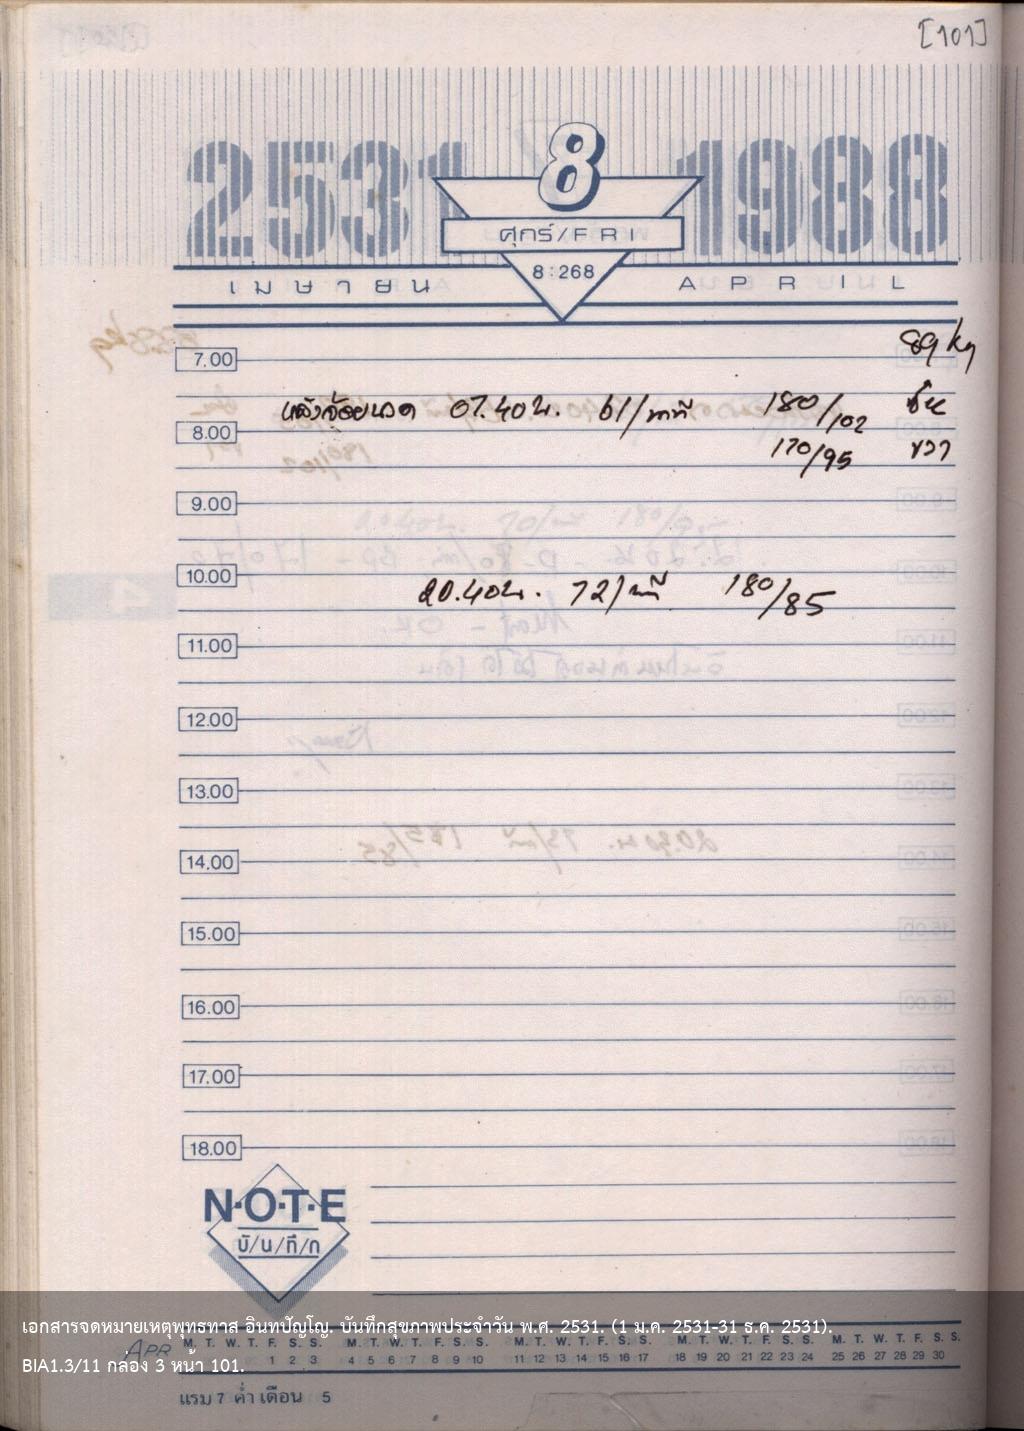 [101]
2531 8 1988
ศุกร์/FRI
เมษายน 8:268 APRIL
89 kg
7.00
07.40น. 61/นาที 180/102
8.00
170/95 ขวา
9.00
10.00
20.40น. 72/นาที 180/85
11.00
12.00
13.00
14.00
15.00
16.00
17.00
18.00
N·O·T·E
บั/น/ทึ/ก
เอกสารจดหมายเหตุพุทธทาส อินทปัญโญ. บันทึกสุขภาพประจำวัน พ.ศ. 2531. (1 ม.ค. 2531-31 ธ.ค. 2531).
APR M. T. W. T. F. S. S. M. T. W. T. F. S. S. M. T. W. T. F. S. S. M. T. W. T. F. S. S. M. T. W. T. F. S. S.
1 2 3 4 5 6 7 8 9 10 11 12 13 14 15 16 17 18 19 20 21 22 23 24 25 26 27 28 29 30
BIA1.3/11 กล่อง 3 หน้า 101.
แรม 7 ค่ำ เดือน 5